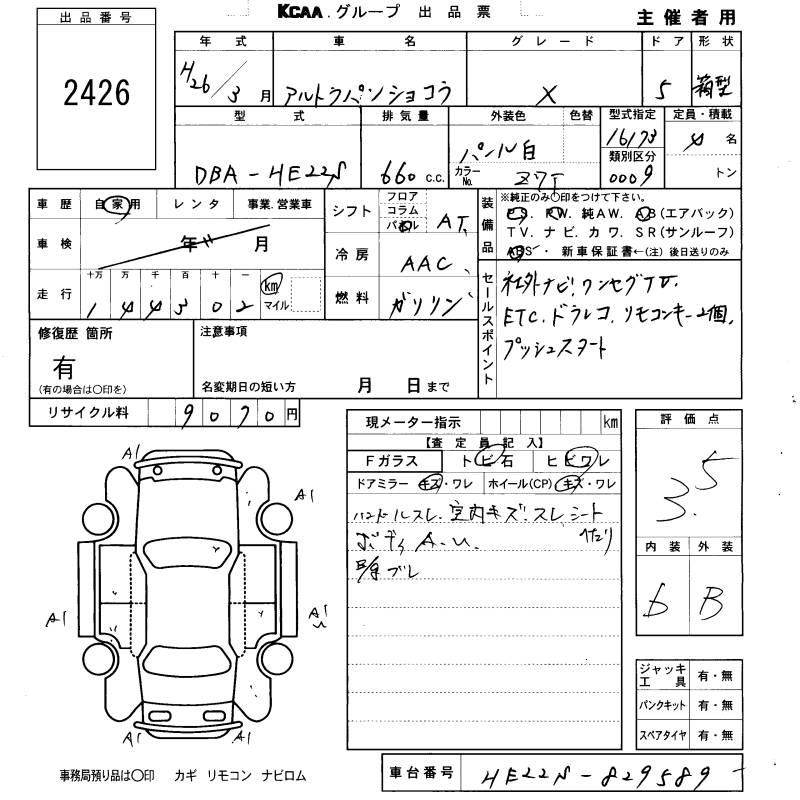 KCAA.グループ 出品票
主催者用
出品番号
2426
年式 車名 グレード ドア 形状
H26/3月 アルトラパンショコラ X 5 箱型
型式 排気量 外装色 色替 型式指定 定員・積載
DBA-HE22S 660 C.C. パール白 16173 4名
カラーNo. Z7T 類別区分 0009 トン
車歴 自家用 レンタ 事業.営業車
車検 年 月
走行 十万 万 千 百 十 一
144302 km マイル
シフト フロア コラム パネル AT
冷房 AAC
燃料 ガソリン
装備品 ※純正のみ〇印をつけて下さい。
P.S. P.W. 純AW. AB(エアバック)
TV. ナビ. カワ. SR(サンルーフ)
ABS・ 新車保証書←(注) 後日送りのみ
セールスポイント
社外ナビ.ワンセグTV.
ETC.ドラレコ.リモコンキー2個.
プッシュスタート
修復歴 箇所
有
(有の場合は〇印を)
注意事項
名変期日の短い方 月 日まで
リサイクル料 9070円
現メーター指示 km
【査定員記入】
Fガラス トビ石 ヒビワレ
ドアミラー キズ・ワレ ホイール(CP) キズ・ワレ
ハンドルスレ.室内キズ.スレ シート
ヘタリ
ボディA.U.
ブレ
評価点
3.5
内装 外装
b B
ジャッキ工具 有・無
パンクキット 有・無
スペアタイヤ 有・無
A1
A1
A1
A1
U
A1
A1
事務局預り品は〇印 カギ リモコン ナビロム
車台番号 HE22S-829589